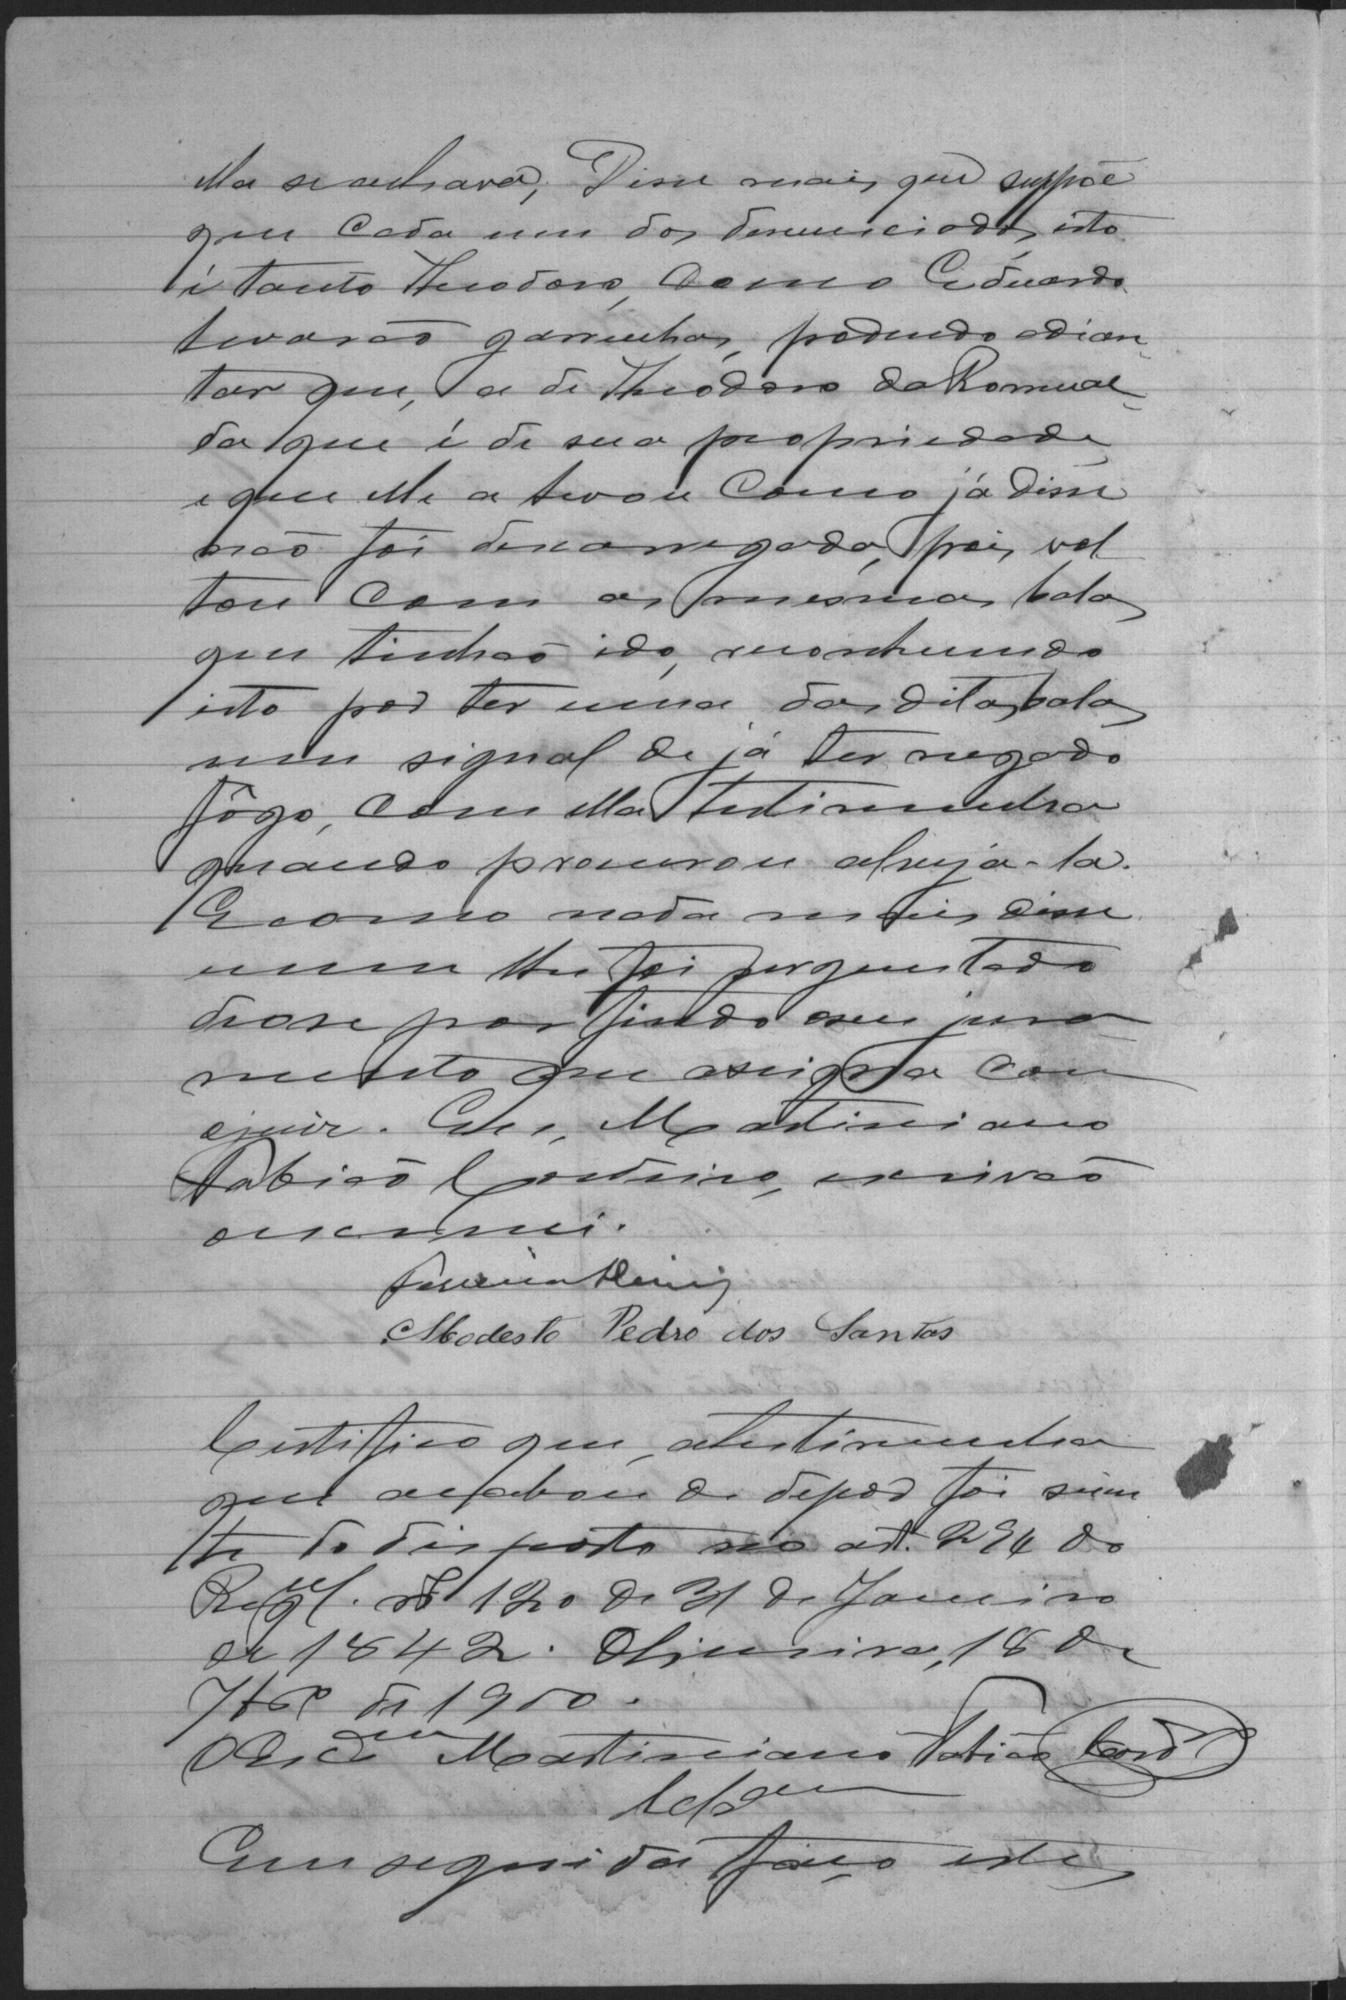 ella se achava, Disse mais, que suppõe
que cada um dos denunciados, isto
é tanto Theodoro, como Eduardo
levarão garruchas, podendo adian-
tar que, a de Theodoro da Romual-
da que é de sua propriedade
e que elle a levou como já disse
não foi descarregada, pois, vol
tou com as mesmas balas
que tinhão ido, reconhecendo
isto por ter uma das ditas balas
um signal de já ter negado
fôgo, com ella testimunha
quando procurou alveja-la.
E como nada mais disse
nem lhe foi perguntado
deo se por findo o seu jura
mento que assigna com
o juiz. Eu, Martiniano
Fabião Cordeiro, escrivão
o escrevi.
Modesto Pedro dos Santos
Certifico que, a testimunha
que acabou de depôr foi scien
te do disposto no art. 294 do
Regul. nº 120 de 31 de Janeiro
de 1842. Oliveira, 18 de
7brº de 1900.
O Escam Martiniano Fabião Cordº
Clsam
Em seguida faço estes